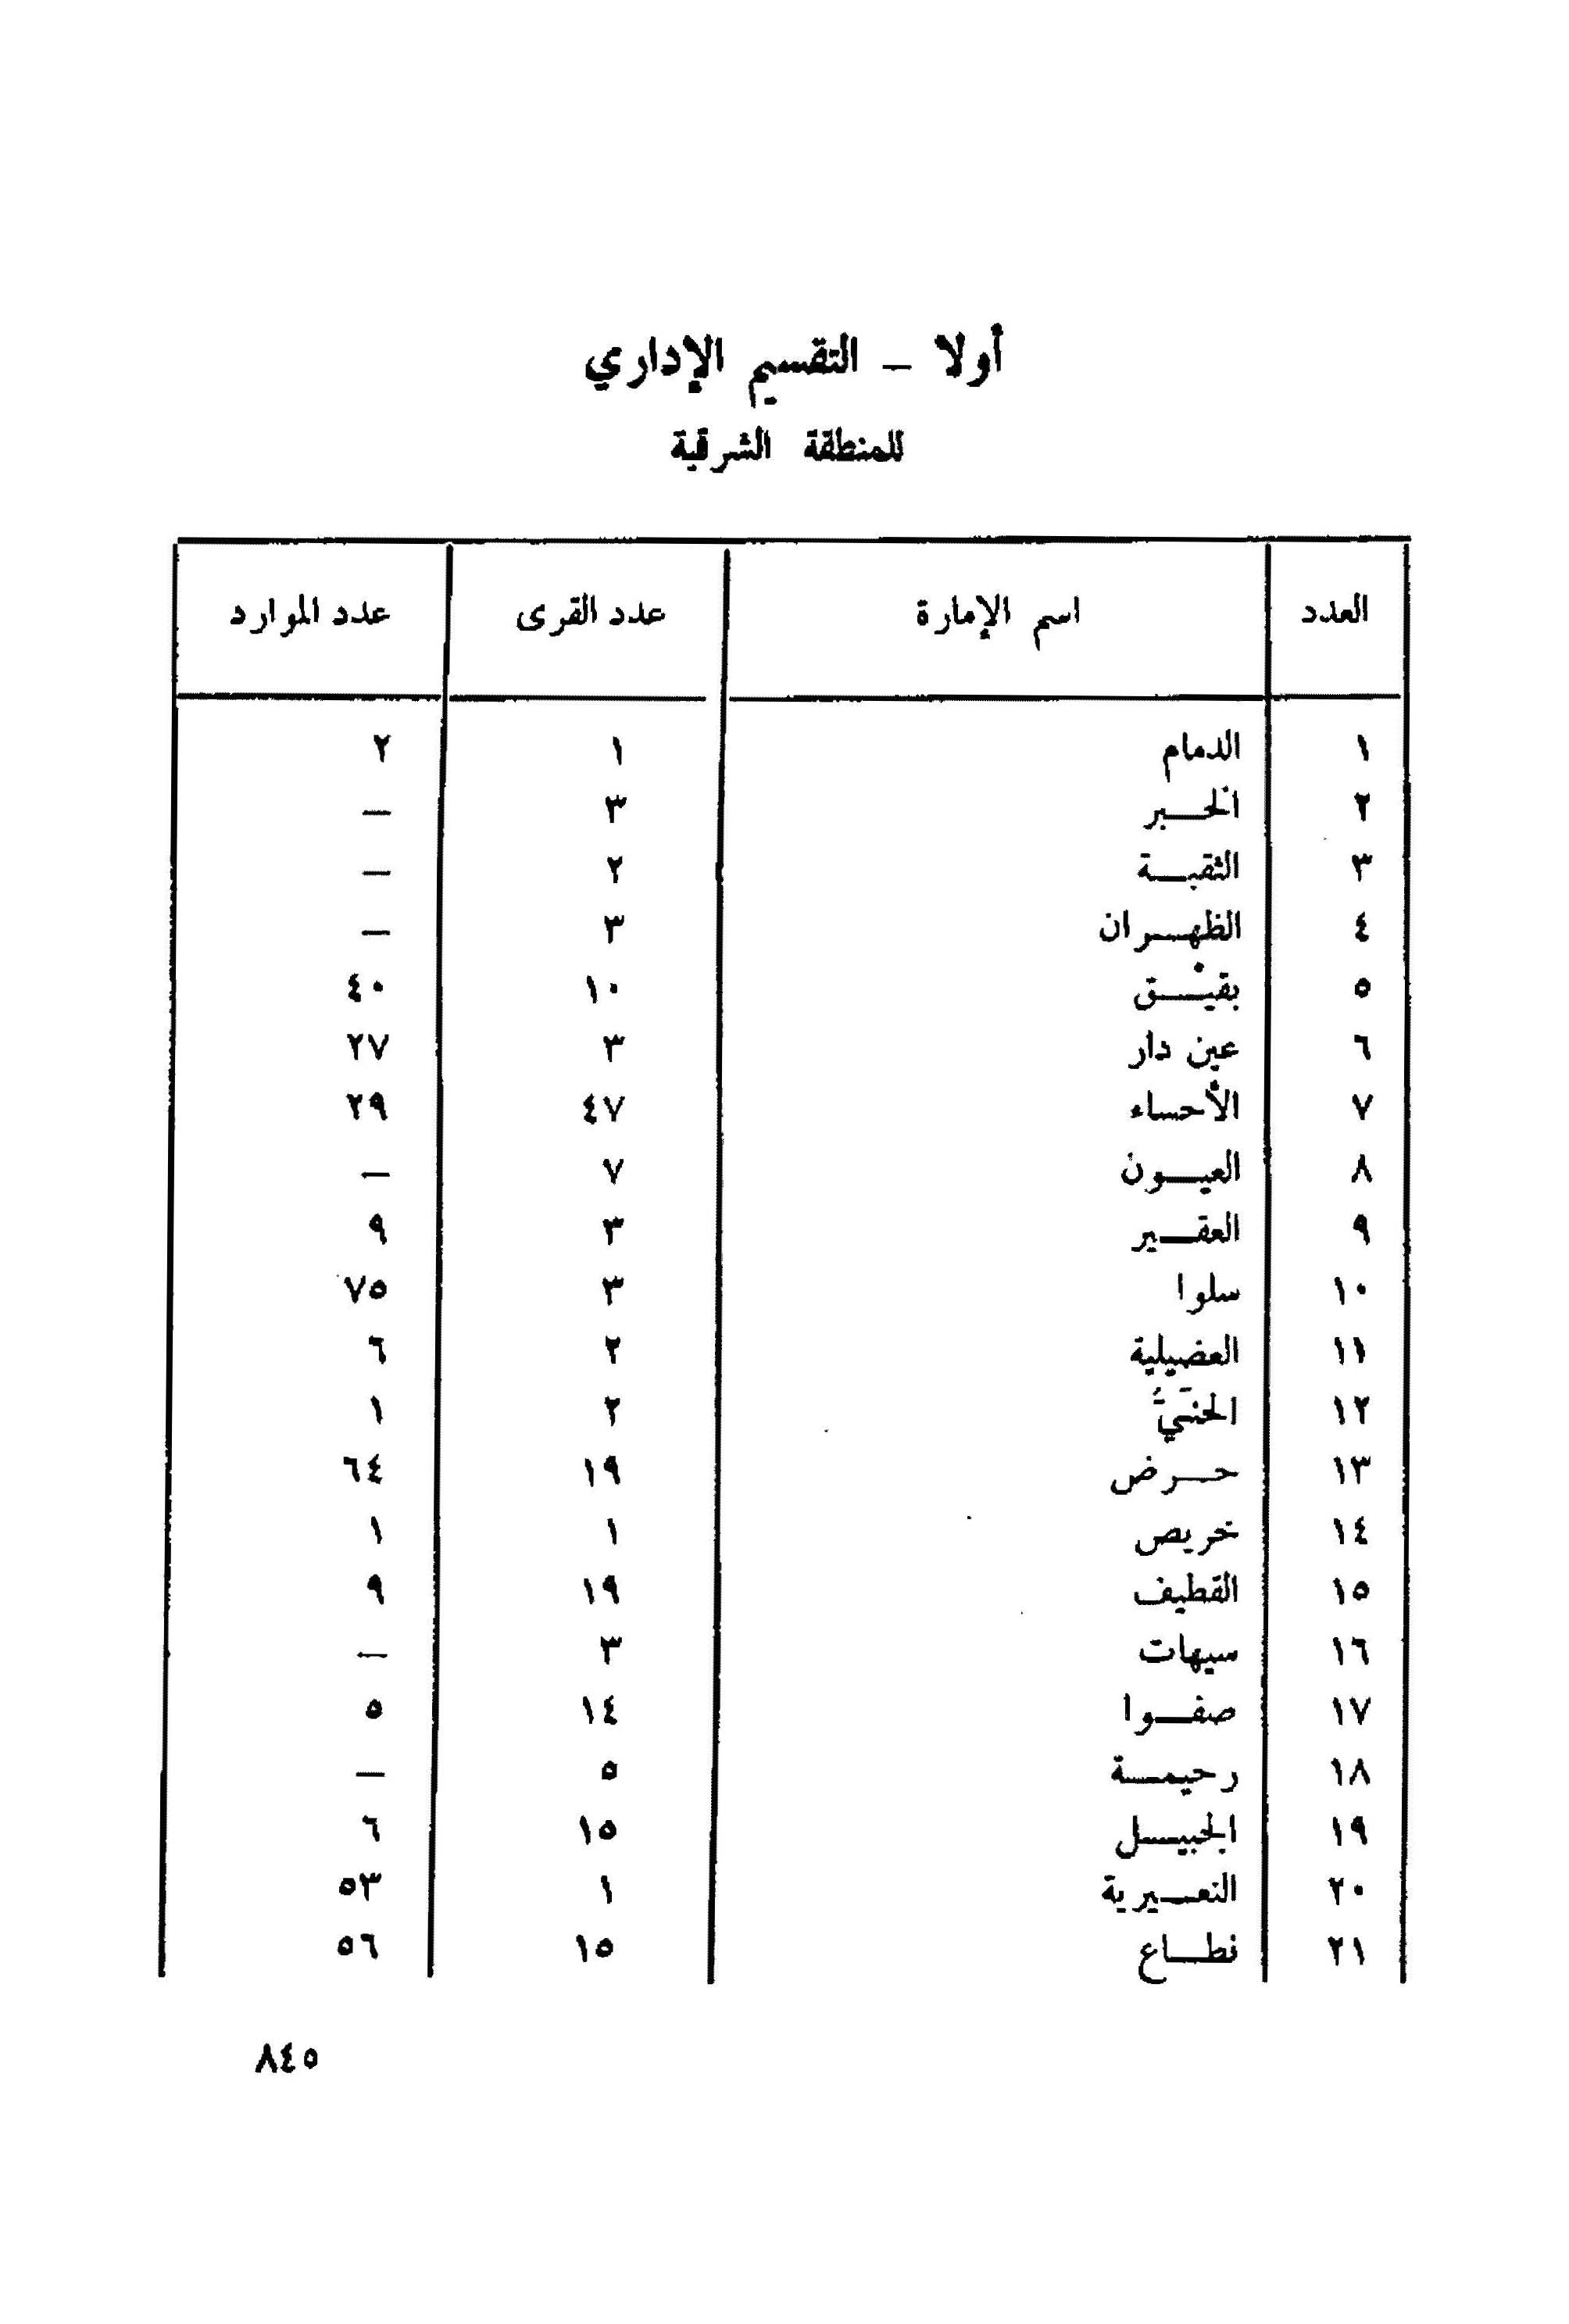 أولا - التقسيم الإداري
للمنطقة الشرقية
العدد اسم الإمارة عدد القرى عدد الموارد
١ الدمام ١ ٢
٢ الخبر ٣ —
٣ الثقبة ٢ —
٤ الظهران ٣ —
٥ بقيق ١٠ ٤٠
٦ عين دار ٣ ٢٧
٧ الأحساء ٤٧ ٢٩
٨ العيون ٧ —
٩ العقير ٣ ٩
١٠ سلوا ٣ ٧٥
١١ العضيلية ٢ ٦
١٢ الحنيّ ٢ ١
١٣ حرض ١٩ ٦٤
١٤ خريص ١ ١
١٥ القطيف ١٩ ٩
١٦ سيهات ٣ —
١٧ صفوا ١٤ ٥
١٨ رحيمة ٥ —
١٩ الجبيل ١٥ ٦
٢٠ النعيرية ١ ٥٣
٢١ نطاع ١٥ ٥٦
٨٤٥